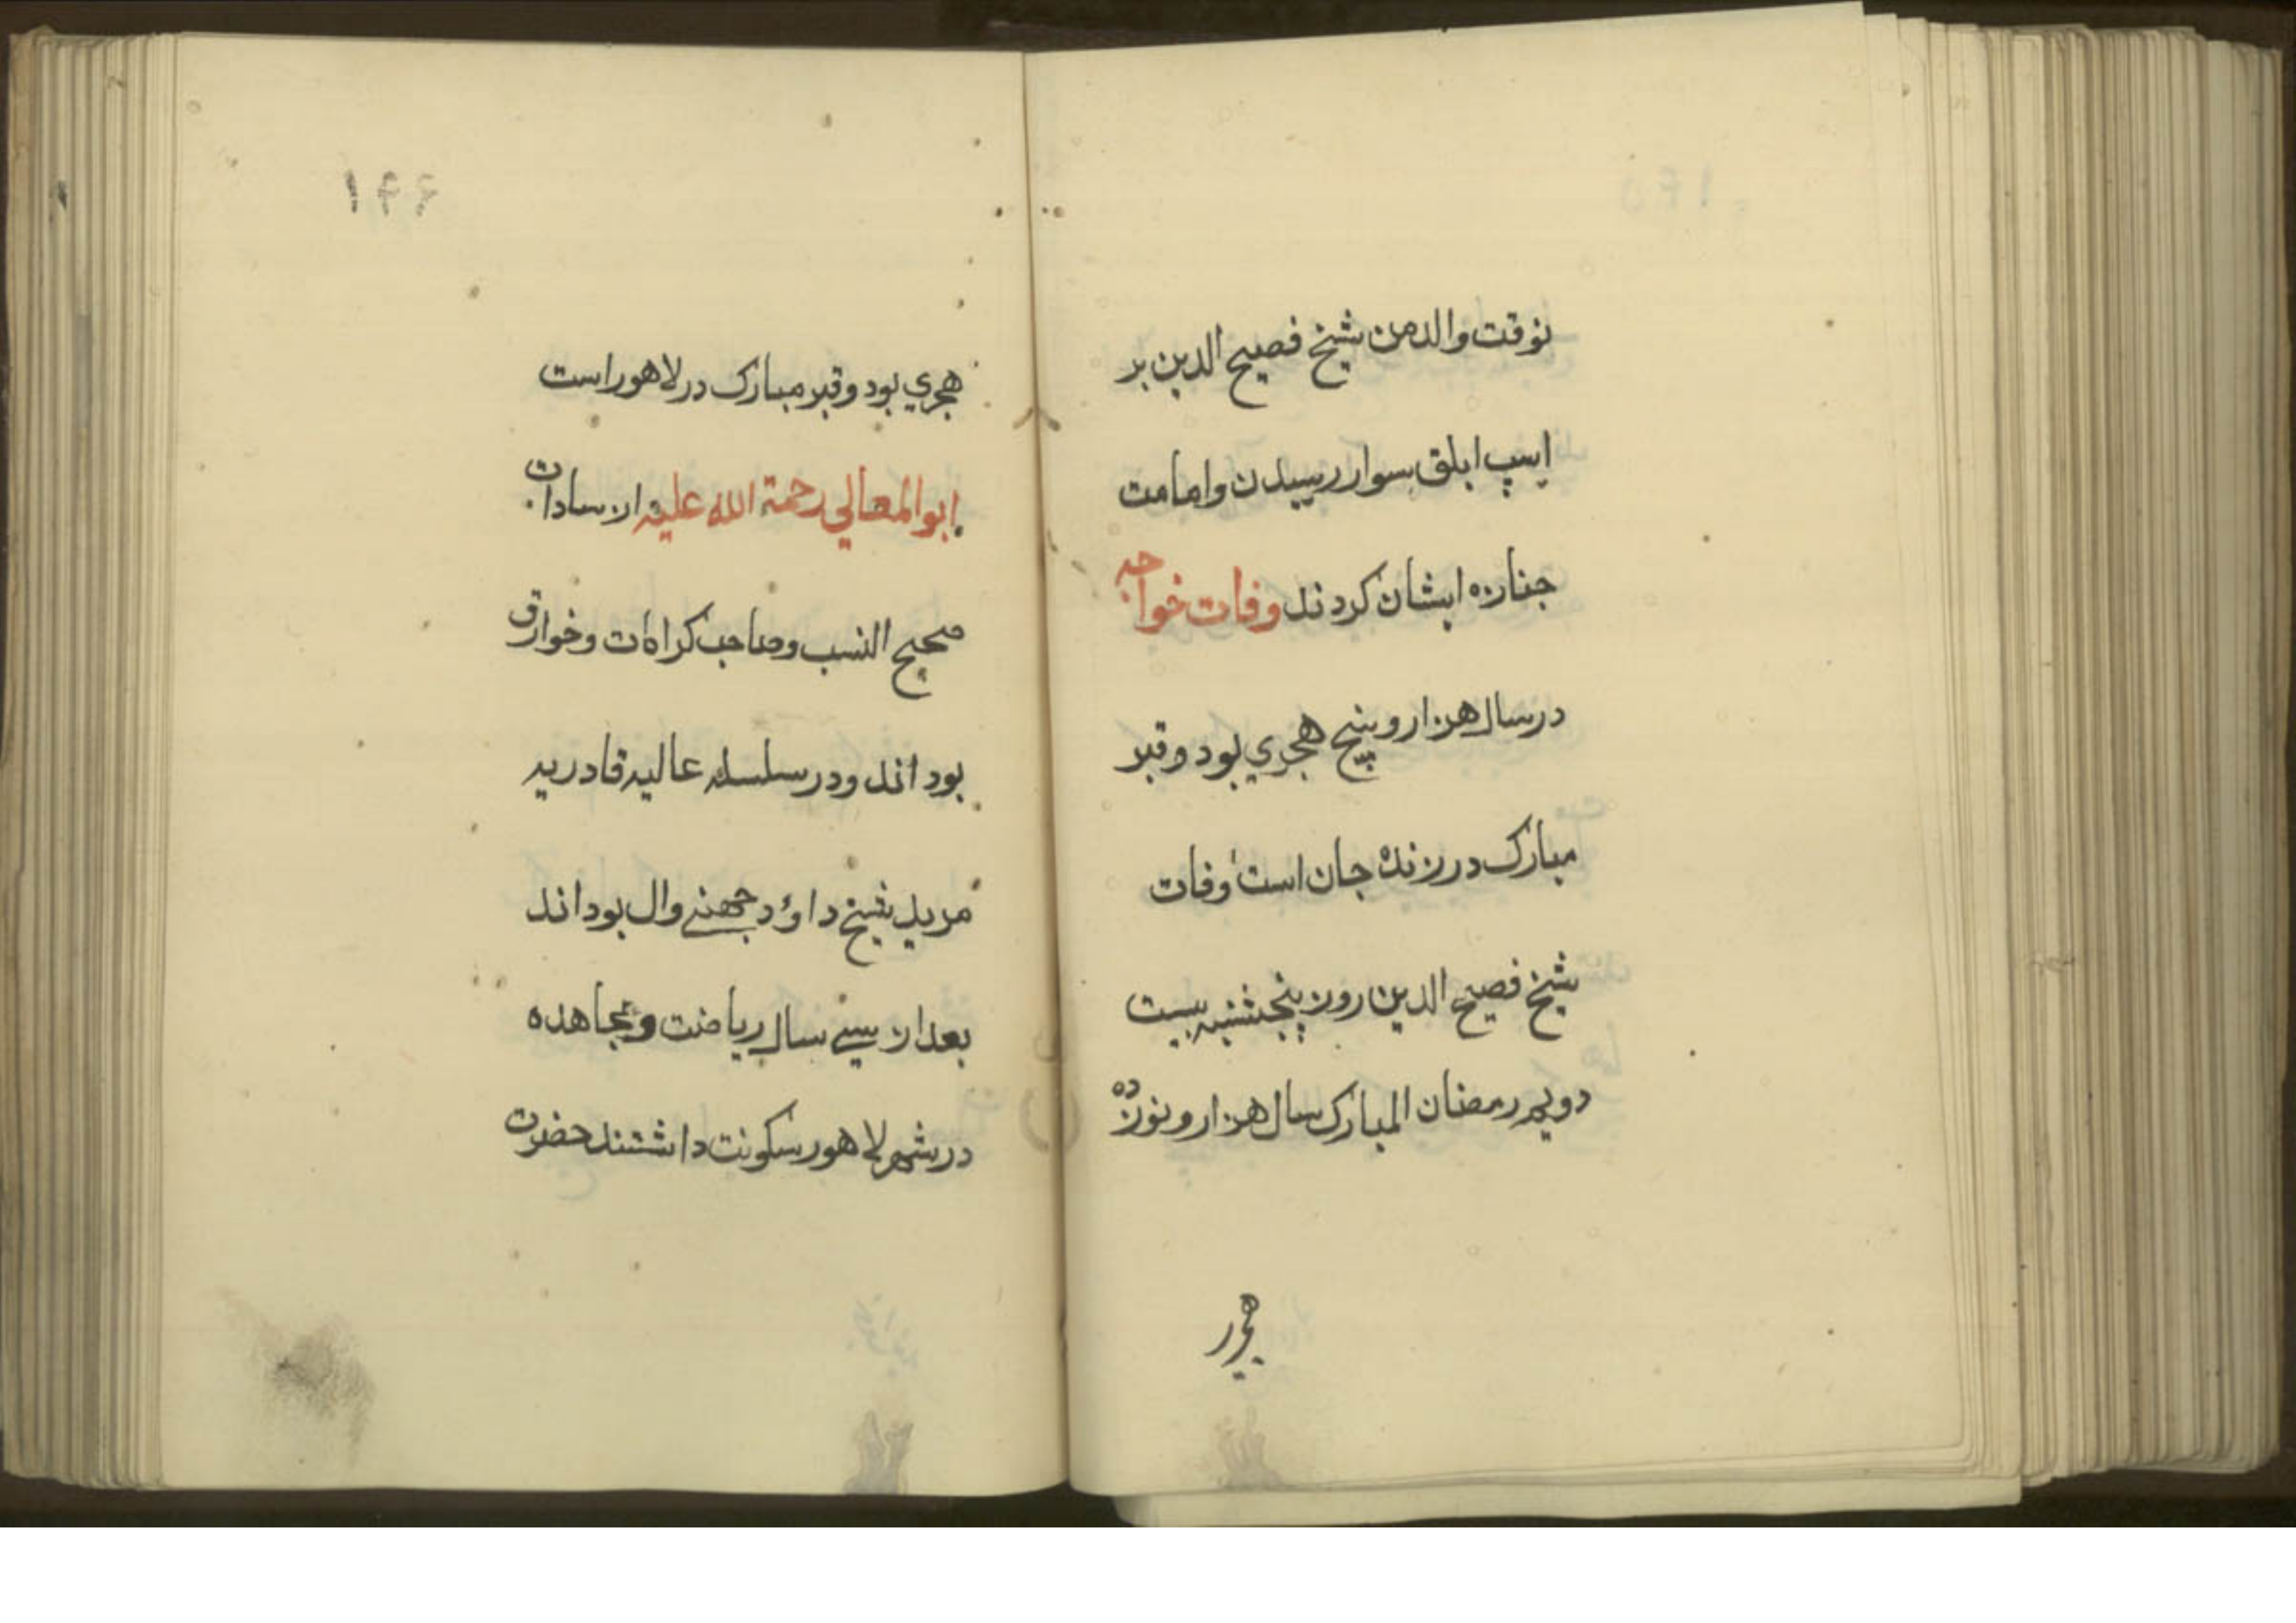 نوقت والد من شیخ فصیح الدین بر
اسپ ابلق سوار رسیدن وامامت
جنازه ایشان کردند وفات خواجه
در سال هزار وپنج هجري بود وقبر
مبارک در زنده جان است وفات
شیخ فصیح الدین روز پنجشنبه بیست
دویم رمضان المبارک سال هزار ونوزده
هجر
۱۴۶
هجري بود وقبر مبارک در لاهور است
ابوالمعالي رحمة الله علیه از سادات
صحیح النسب وصاحب کرامات وخوارق
بود اند ودر سلسله عالیه قادریه
مرید شیخ داؤد جهنے وال بود اند
بعد از سیے سال ریاضت ومجاهده
در شهر لاهور سکونت داشتند حضرت